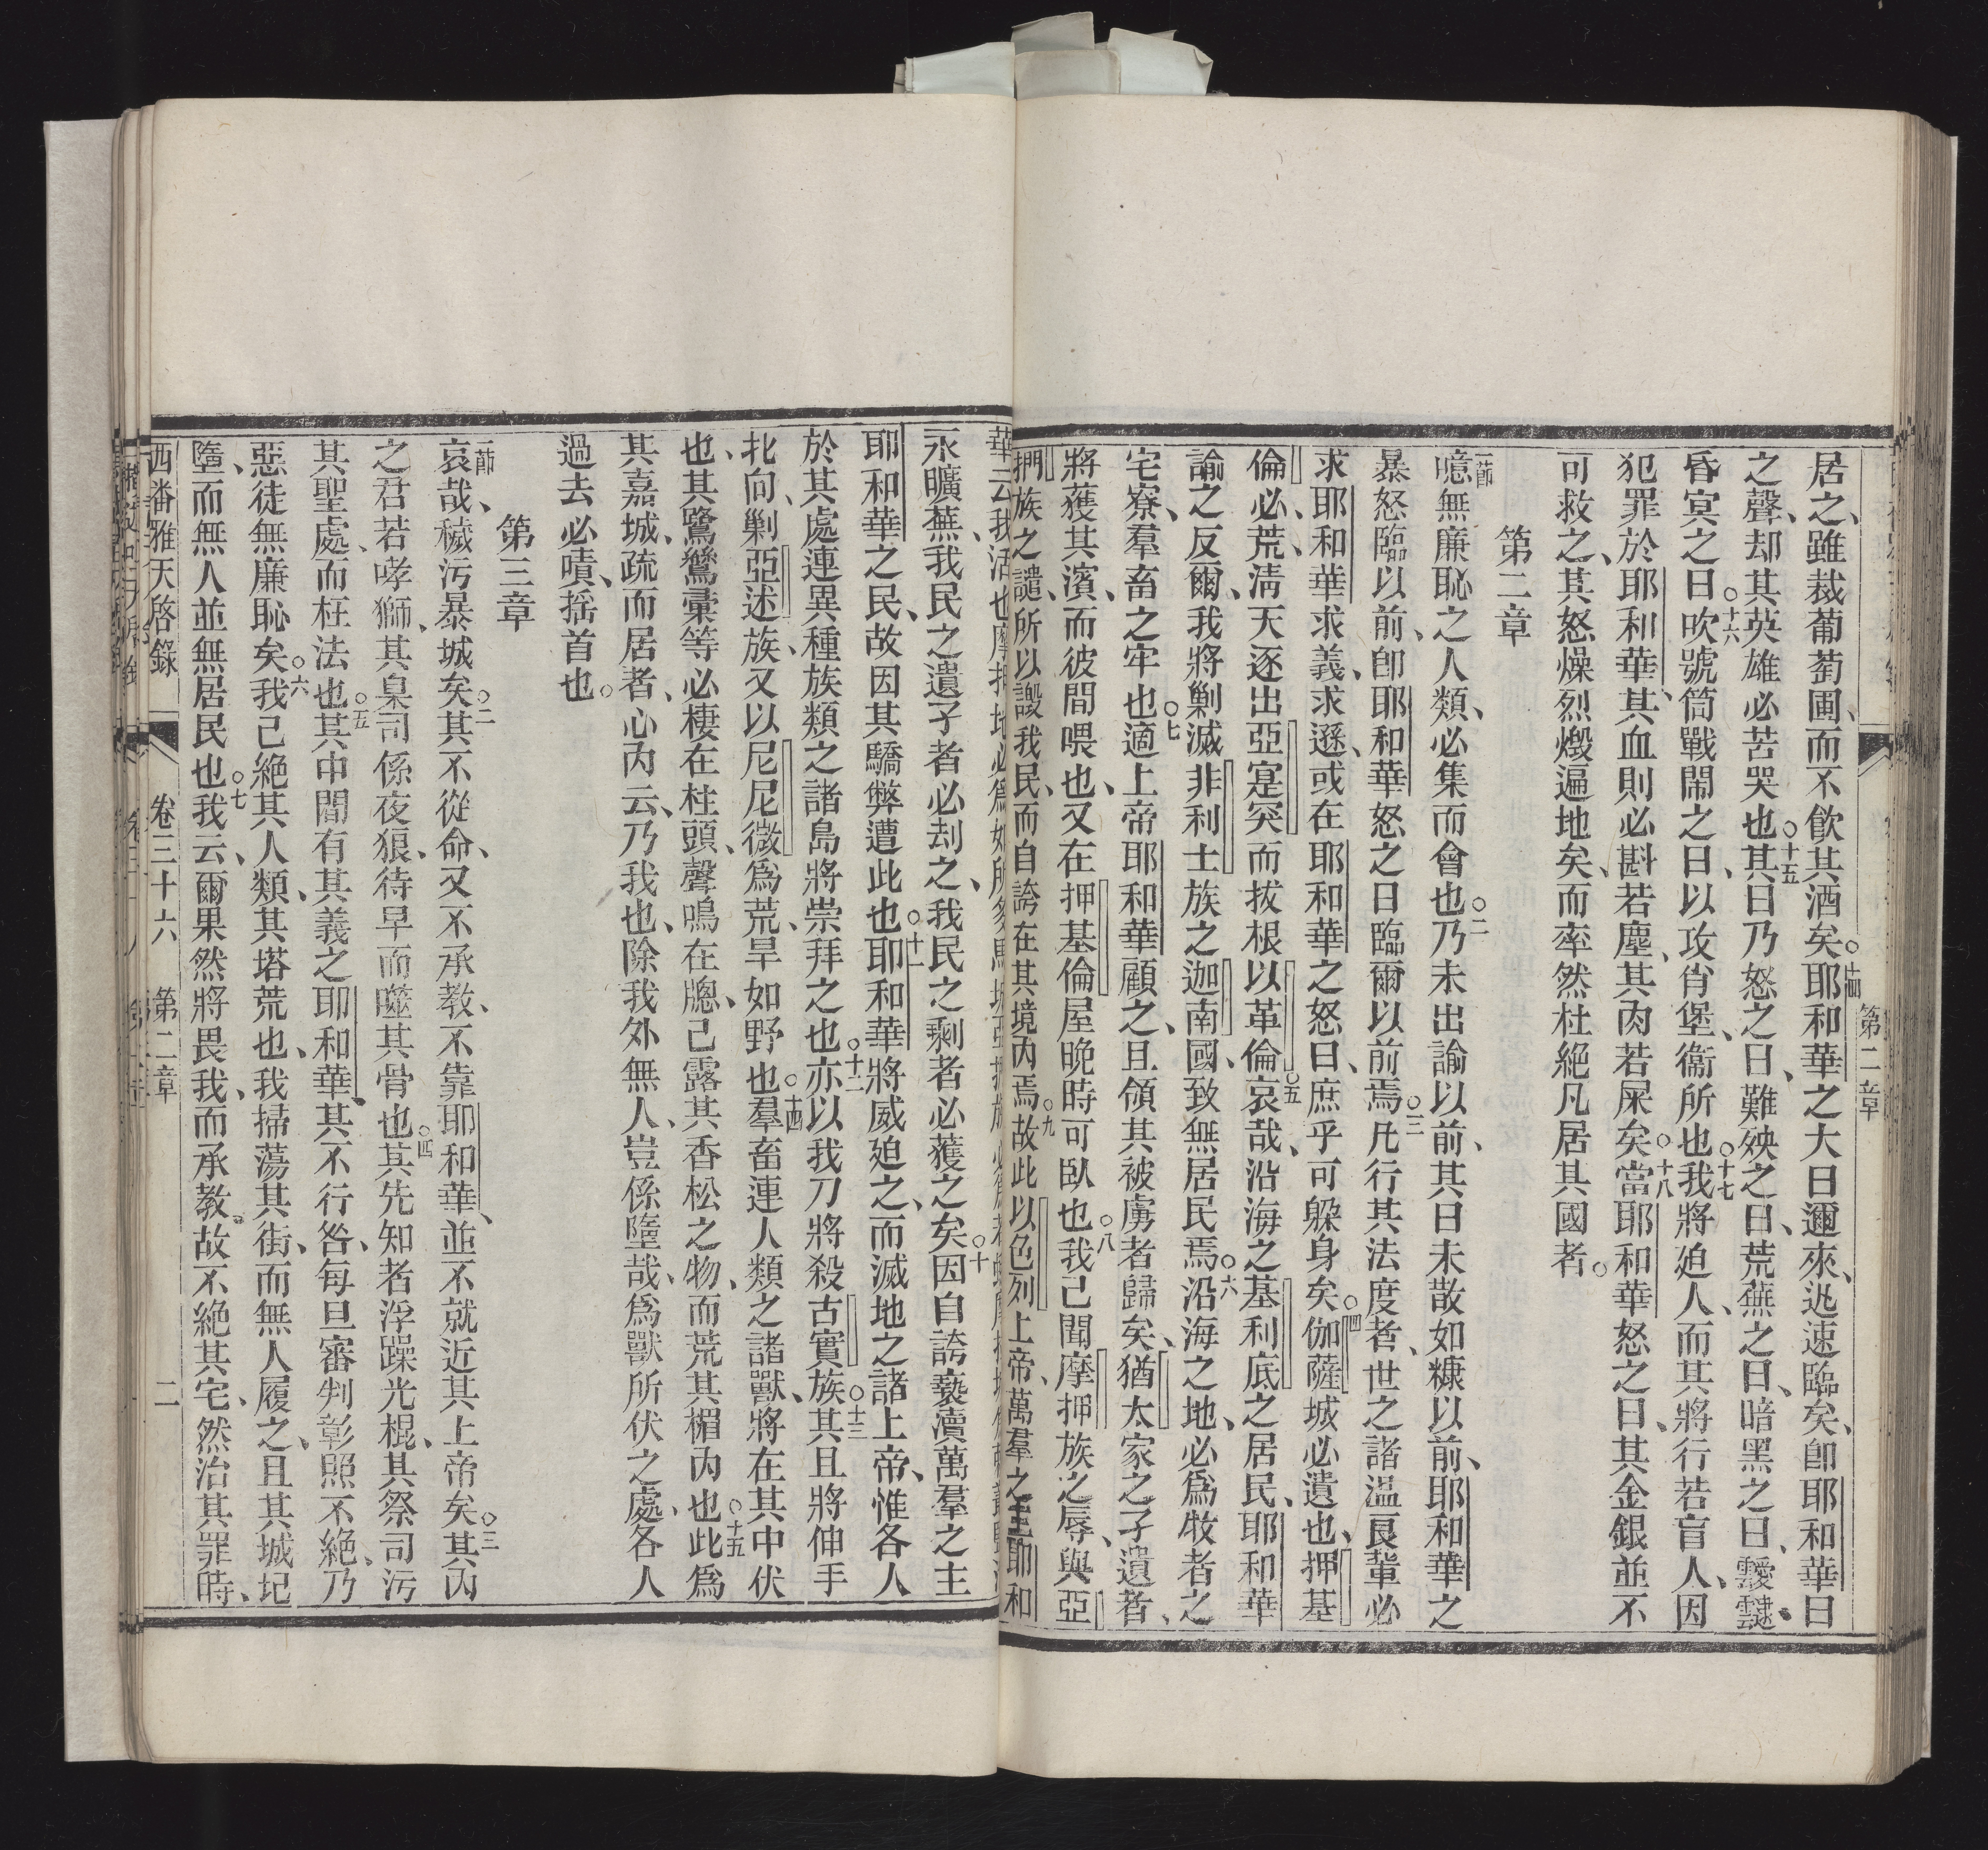 第二章
居之、雖裁葡萄圃、而不飲其酒矣。○十四耶和華之大日邇來、迅速臨矣、卽耶和華日
之聲、却其英雄必苦哭也○十五其日乃怒之日、難殃之日、荒蕪之日、暗黑之日、靉靆、
昏冥之日○十六吹號筒戰鬧之日、以攻肖堡、衞所也○十七我將廹人、而其將行若盲人、因
犯罪於耶和華、其血則必斟若塵、其肉若屎矣○十八當耶和華怒之日、其金銀並不
可救之、其怒燥烈燬遍地矣、而率然杜絕凡居其國者。
第二章
一節噫無廉恥之人類、必集而會也○二乃未出諭以前、其日未散如糠以前、耶和華之
暴怒臨以前、卽耶和華怒之日臨爾以前焉○三凡行其法度者、世之諸溫良輩必
求耶和華求義、求遜、或在耶和華之怒日、庶乎可躱身矣○四伽薩城必遺也、押基
倫必荒、淸天逐出亞寔突而拔根以革倫○五哀哉、沿海之基利底之居民、耶和華
諭之反爾、我將剿滅非利士族之迦南國、致無居民焉○六沿海之地、必爲牧者之
宅寮、羣畜之牢也○七適上帝耶和華顧之、且領其被虜者歸矣、猶太家之孑遺者、
將獲其濱、而彼間喂也、又在押基倫屋晚時可臥也○八我己聞摩押族之辱、與亞
捫族之譴、所以譭我民、而自誇在其境內焉○九故此以色列上帝、萬羣之主耶和
永曠蕪、我民之遺孑者必刦之、我民之剩者必獲之矣○十因自誇褻瀆萬羣之主
耶和華之民、故因其驕弊遭此也○十一耶和華將威廹之、而滅地之諸上帝、惟各人
於其處連異種族類之諸島將崇拜之也○十二亦以我刀將殺古實族○十三其且將伸手
北向、剿亞述族、又以尼尼微爲荒、旱如野也○十四羣畜連人類之諸獸、將在其中伏
也、其鷺鷥彙等必棲在柱頭、聲鳴在牕、己露其香松之物、而荒其楣內也○十五此爲
其嘉城、疏而居者、心內云、乃我也、除我外無人、豈係墮哉、爲獸所伏之處、各人
過去必嘖、搖首也。
第三章
一節哀哉、穢污暴城矣○二其不從命、又不承教、不靠耶和華、並不就近其上帝矣○三其內
之君若哮獅、其臬司係夜狼、待早而噬其骨也○四其先知者浮躁光棍、其祭司污
其聖處、而枉法也○五其中間有其義之耶和華、其不行咎、每旦審判彰照不絕、乃
惡徒無廉恥矣○六我己絕其人類、其塔荒也、我掃蕩其街、而無人履之、且其城圮
墮、而無人並無居民也○七我云、爾果然將畏我、而承教、故不絕其宅、然治其罪時、
西番雅天啓錄 卷三十六 第二章 二